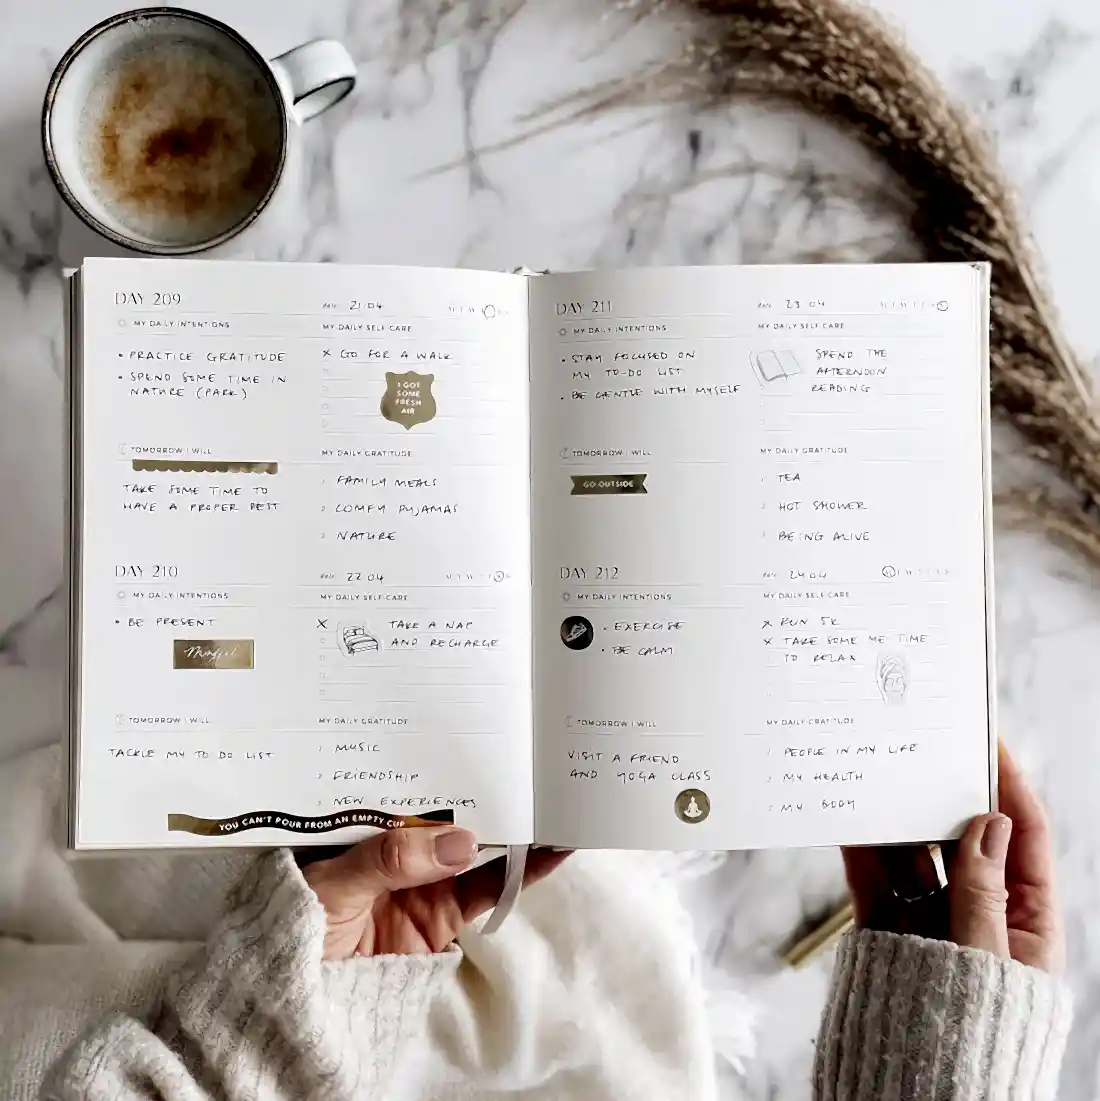 DAY 209
DATE 21 04
MY DAILY INTENTIONS
• PRACTICE GRATITUDE
• SPEND SOME TIME IN
NATURE (PARK)
MY DAILY SELF CARE
X GO FOR A WALK
I GOT
SOME
FRESH
AIR
TOMORROW I WILL
TAKE SOME TIME TO
HAVE A PROPER REST
MY DAILY GRATITUDE
1 FAMILY MEALS
2 COMFY PYJAMAS
3 NATURE
DAY 210
DATE 22 04
MY DAILY INTENTIONS
• BE PRESENT
Mindful
MY DAILY SELF CARE
X TAKE A NAP
AND RECHARGE
TOMORROW I WILL
TACKLE MY TO DO LIST
MY DAILY GRATITUDE
1 MUSIC
2 FRIENDSHIP
3 NEW EXPERIENCES
YOU CAN'T POUR FROM AN EMPTY CUP
DAY 211
DATE 23 04
MY DAILY INTENTIONS
• STAY FOCUSED ON
MY TO-DO LIST
• BE GENTLE WITH MYSELF
MY DAILY SELF CARE
SPEND THE
AFTERNOON
READING
TOMORROW I WILL
GO OUTSIDE
MY DAILY GRATITUDE
1 TEA
2 HOT SHOWER
3 BEING ALIVE
DAY 212
DATE 24 04
MY DAILY INTENTIONS
• EXERCISE
• BE CALM
MY DAILY SELF CARE
X RUN 5K
X TAKE SOME ME TIME
TO RELAX
TOMORROW I WILL
VISIT A FRIEND
AND YOGA CLASS
MY DAILY GRATITUDE
1 PEOPLE IN MY LIFE
2 MY HEALTH
3 MY BODY